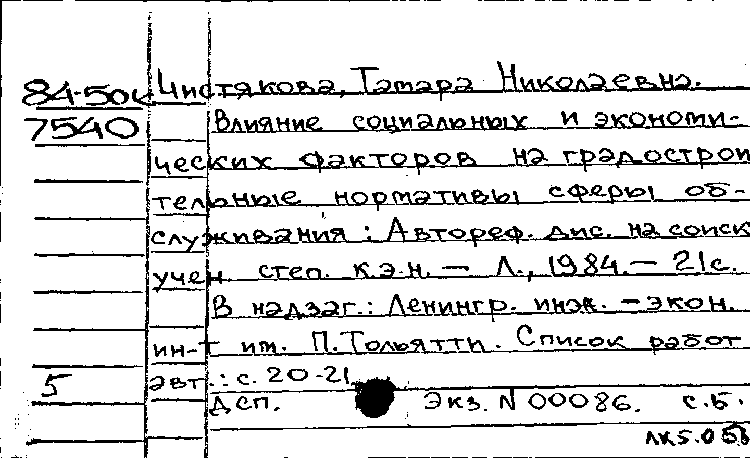 84-50к Чистякова, Тамара Николаевна.
7540 Влияние социальных и экономи-
ческих факторов на градострои
тельные нормативы сферы об-
служивания : Автореф. дис. на соиск
учен. степ. к.э.н. — Л., 1984. — 21с.
В надзаг.: Ленингр. инж. - экон.
ин-т им. П. Тольятти. Список работ
5 авт.: с. 20-21.
ДСП. Экз. N 00086. с.б.